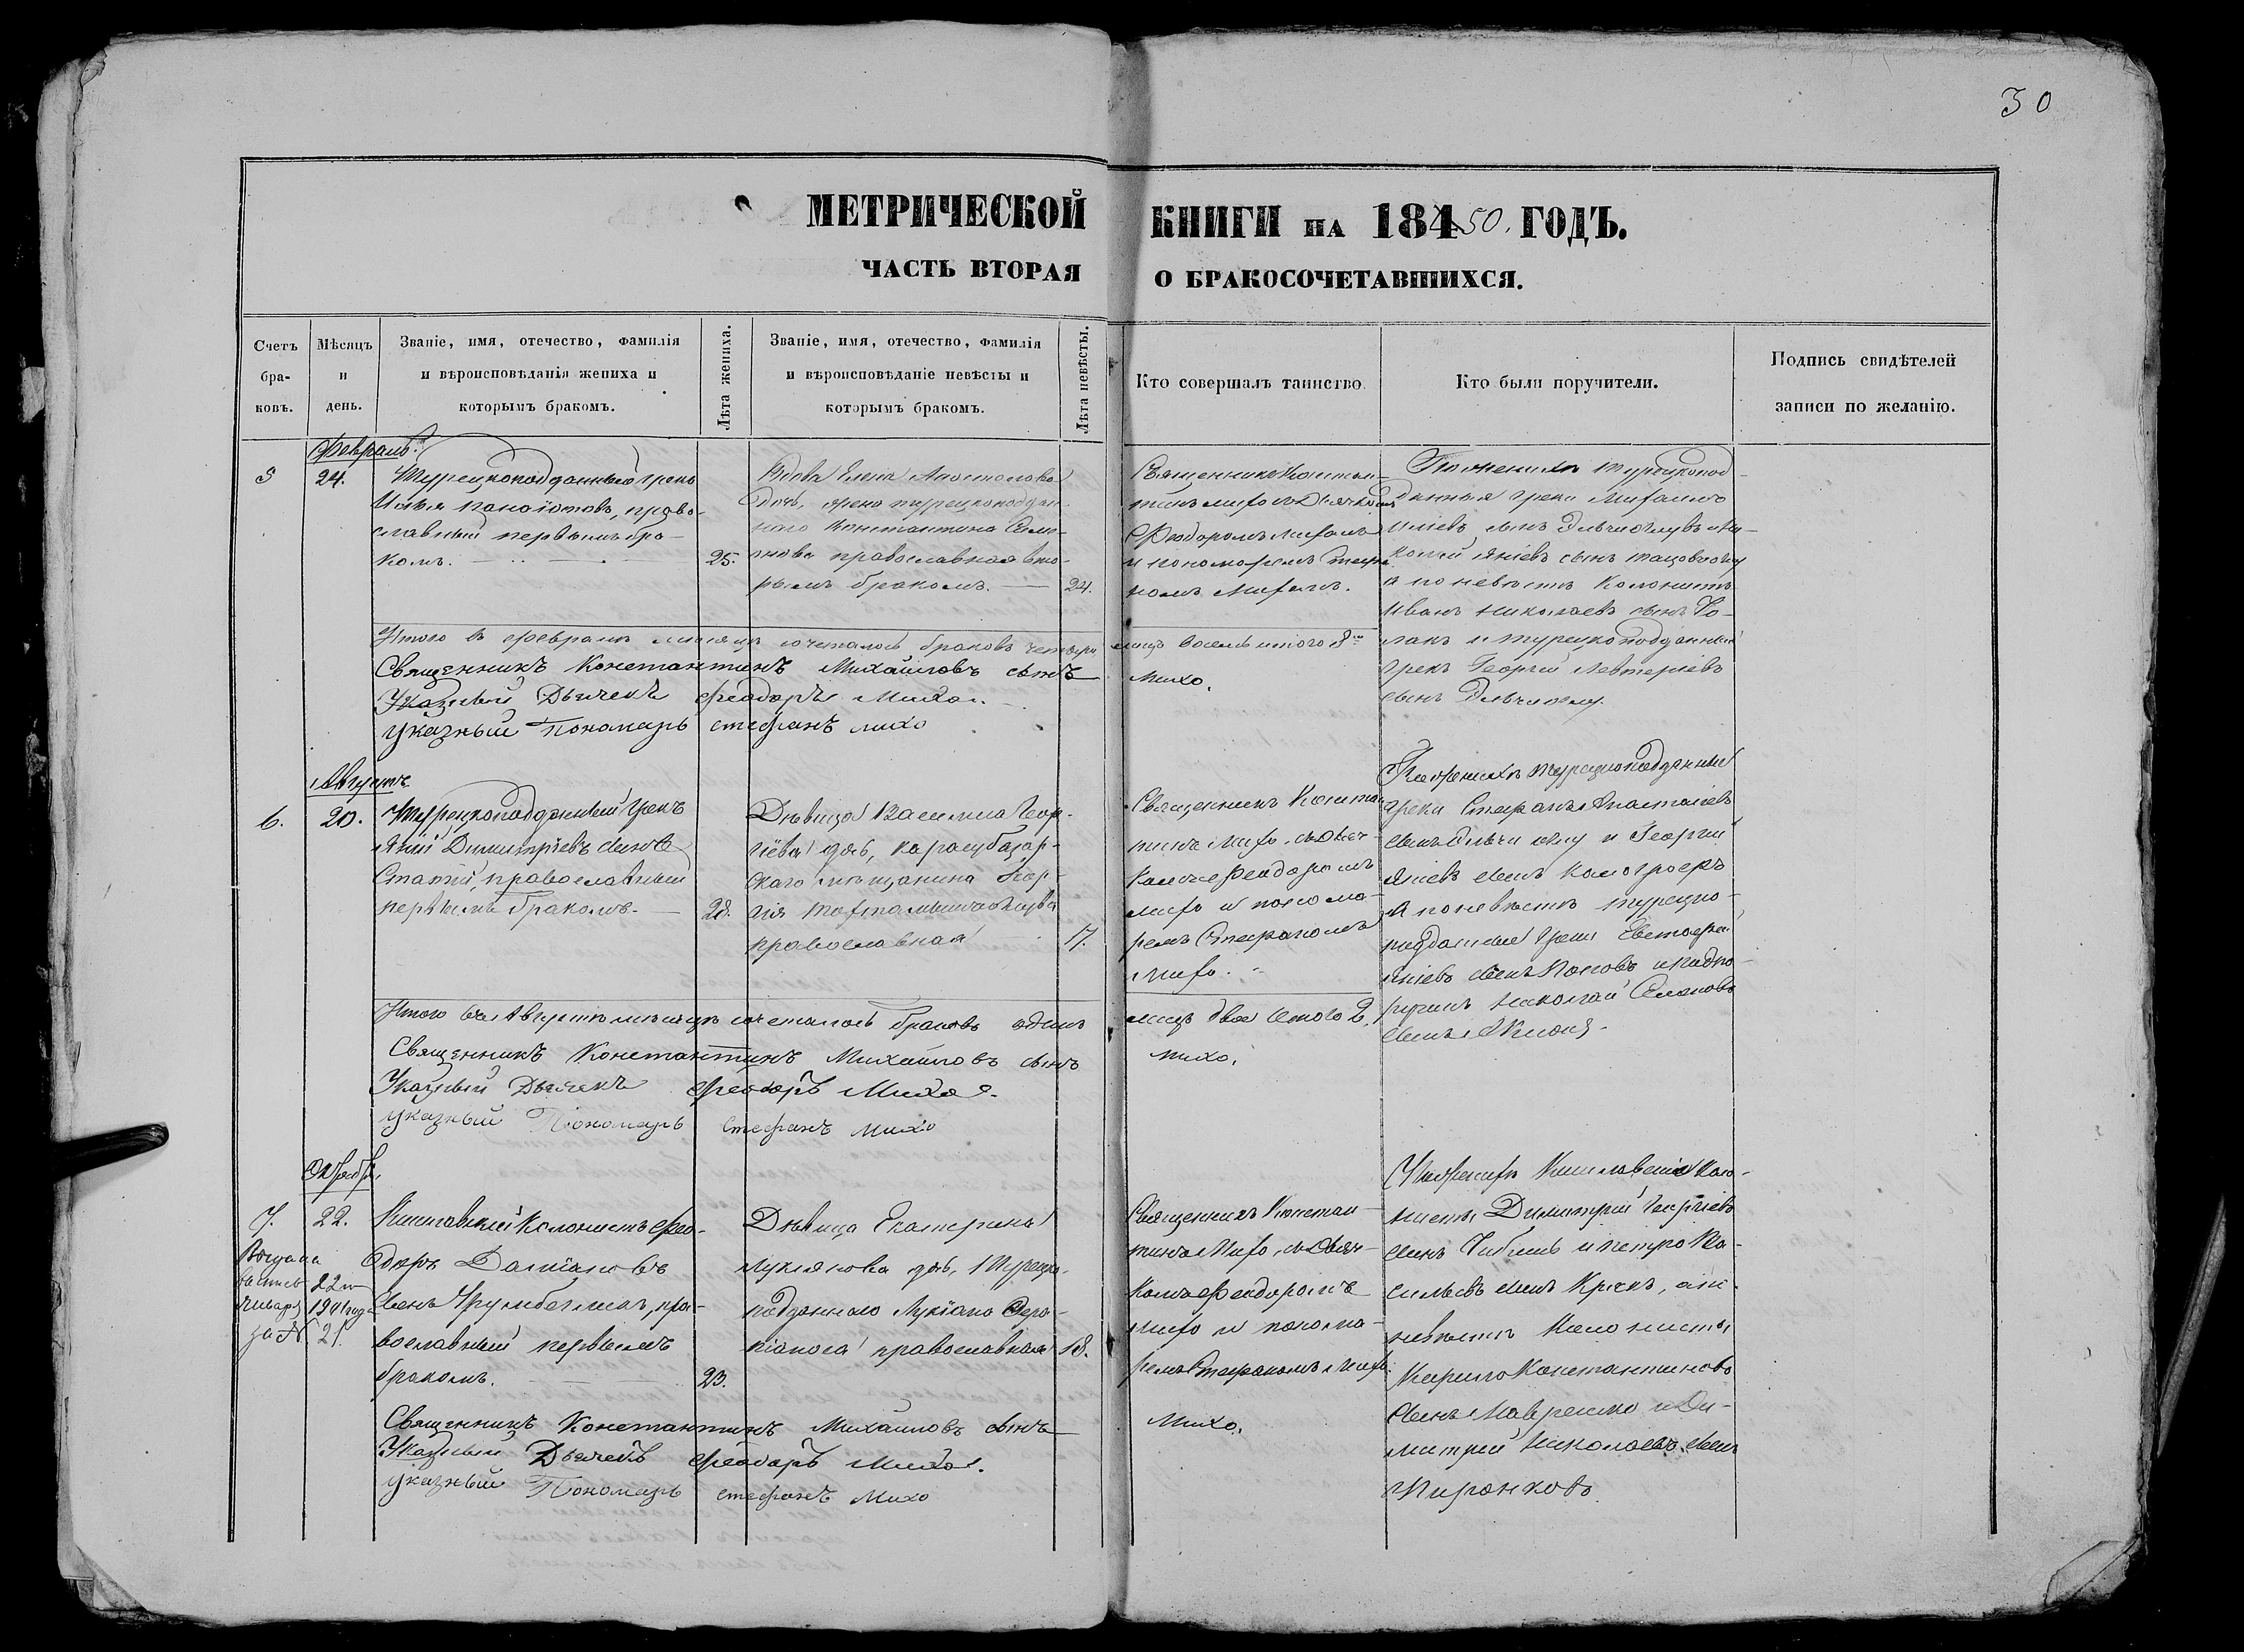 30
МЕТРИЧЕСКОЙ КНИГИ НА 18450. ГОДЪ.
ЧАСТЬ ВТОРАЯ О БРАКОСОЧЕТАВШИХСЯ.
Счетъ бра-ковъ.
Мѣсяцъ и день.
Званіе, имя, отечество, фамилія
и вѣроисповѣданія жениха и
которымъ бракомъ.
Лѣта жениха.
Званіе, имя, отечество, фамилія
и вѣроисповѣданіе невѣсты и
которымъ бракомъ.
Лѣта невѣсты.
Кто совершалъ таинство.
Кто были поручители.
Подпись свидѣтелей
записи по желанію.
Февраль.
5
24.
Турецкоподданный грекъ
Илья Панаіотовъ, право-
славный первымъ бра-
комъ.
25.
Вдова Елена Апостолова
дочь, грека турецкоподдан-
наго Константина
православная вто-
рымъ бракомъ.
24.
Священникъ Констан-
тинъ Михо съ Дьячкомъ
Феодоромъ Михомъ
и пономаремъ Стефа-
номъ Михомъ.
По женихѣ турецкопод-
данныя греки Михаилъ
Иліевъ сынъ
Яніевъ сынъ
а по невѣстѣ Колонистъ
Иванъ Николаевъ сынъ
и турецкоподданный
грекъ Георгій Левтеріевъ
сынъ
Итого въ Февралѣ мѣсяцѣ сочеталось браковъ четыре лицъ восемь итого 8
Священникъ Константинъ Михайловъ сынъ Михо.
Указный Дьячекъ Феодоръ Михо.
указный Пономарь стефанъ михо
Августъ
6.
20.
Турецкоподданный грекъ
Яній Димитріевъ сынъ
православный
первымъ бракомъ.
28.
Дѣвица Василиса Геор-
гіева дочь, карасубазар-
скаго мѣщанина Геор-
гія
православная
17.
Священникъ Констан-
тинъ Михо, съ Дьяч-
комъ Феодоромъ
Михо и понома-
ремъ Стефаномъ
Михо.
По женихѣ турецкоподданные
греки Стефанъ Анастасіевъ
сынъ и Георгій
Яніевъ сынъ
а по невѣстѣ турецко-
подданные греки
Яніевъ сынъ Поповъ
Николай
сынъ
Итого въ Августѣ мѣсяцѣ сочеталось браковъ одинъ лицъ двое итого 2.
Священникъ Константинъ Михайловъ сынъ Михо.
Указный Дьячекъ Феодоръ Михо.
указный Пономарь Стефанъ михо
Октябрь.
7.
22.
Кишлавскій Колонистъ Фео-
доръ Даміановъ
сынъ пра-
вославный первымъ
бракомъ.
23.
Дѣвица Екатерина
Лукіанова дочь, Турецко-
подданнаго Лукіана
православная
18.
Священникъ Констан-
тинъ Михо, съ Дьяч-
комъ Феодоромъ
Михо и понома-
ремъ Стефаномъ Михо.
По женихѣ Кишлавскіе Коло-
нисты Димитрій Георгіевъ
сынъ и Петро Ва-
сильевъ сынъ а по
невѣстѣ Колонисты
Кирило Константиновъ
сынъ и Ди-
митрій Николаевъ сынъ
22
Января 1901 года
за № 21.
Священникъ Константинъ Михайловъ сынъ Михо.
Указный Дьячекъ Феодоръ Михо.
указный Пономарь стефанъ михо